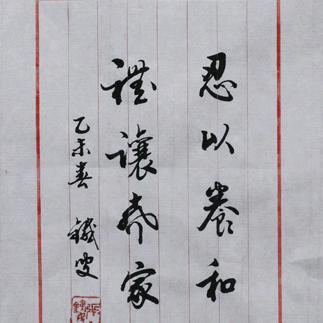 忍以養和
禮讓齊家
乙未春 鐵叟